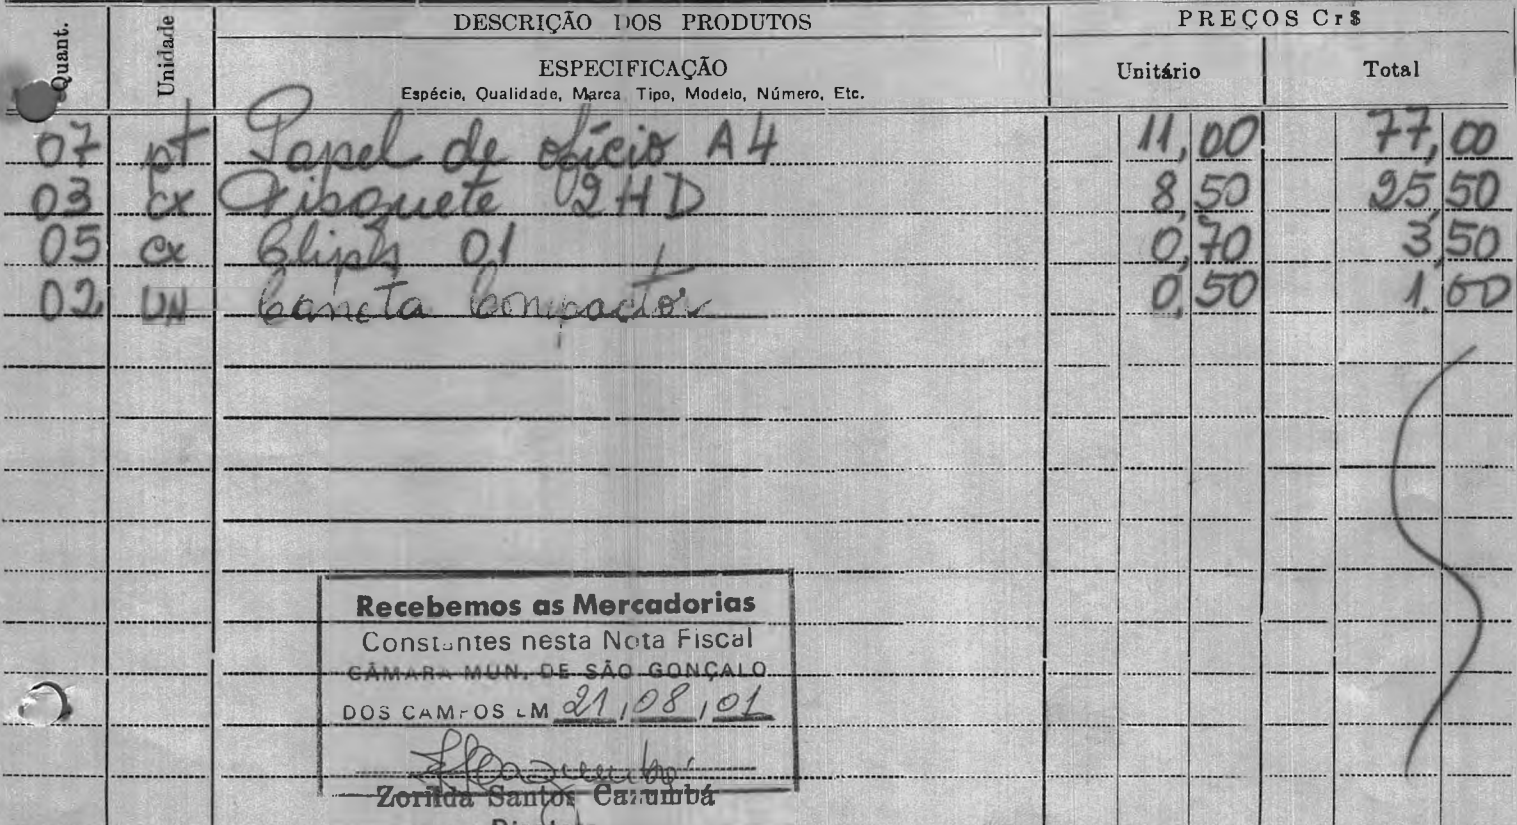 Quant. Unidade DESCRIÇÃO DOS PRODUTOS PREÇOS Cr$
ESPECIFICAÇÃO Unitário Total
Espécie, Qualidade, Marca Tipo, Modelo, Número, Etc.
07 pt Papel de ofício A4 11,00 77,00
03 cx Disquete 2HD 8,50 25,50
05 cx Clips 01 0,70 3,50
02 UN Caneta Compactor 0,50 1,00
Recebemos as Mercadorias
Constantes nesta Nota Fiscal
CÂMARA MUN. DE SÃO GONÇALO
DOS CAMPOS EM 21,08,01
Zorilda Santos Cazumbá